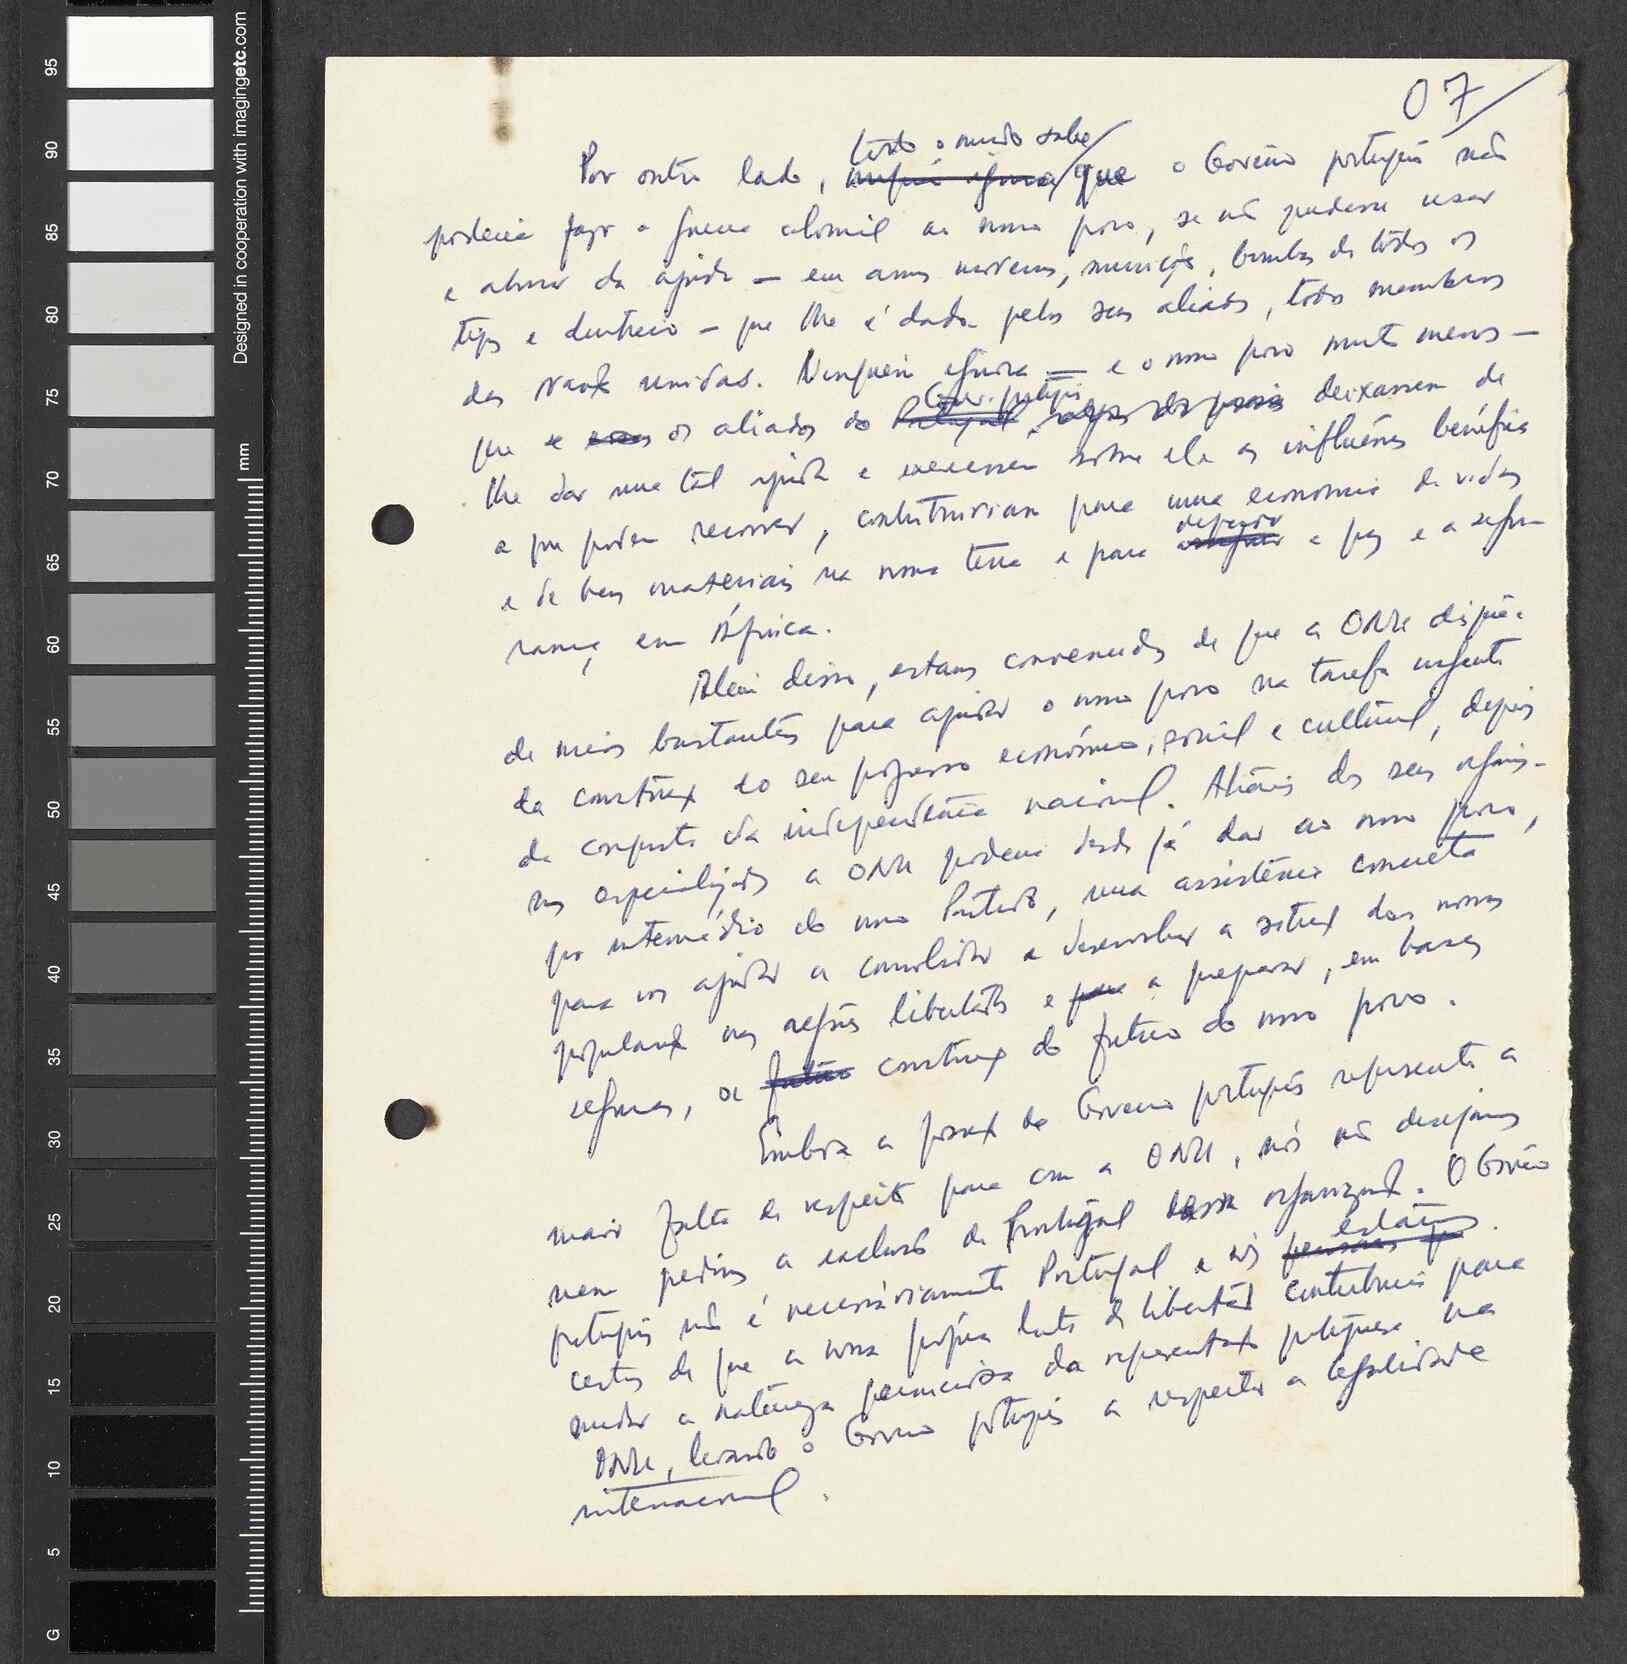 07
todo o mundo sabe
Por outro lado, ninguém ignora que o Govêrno português não
poderia fazer a guerra colonial ao nosso povo, se não pudesse usar
e abusar da ajuda — em armas modernas, munições, bombas de todos os
tipos e dinheiro — que lhe é dada pelos seus aliados, todos membros
das Nações Unidas. Ninguém ignora — e o nosso povo muito menos —
Gov. português
que se esses os aliados do Portugal, deixassem de
lhe dar uma tal ajuda e exercessem sobre ele as influências benéficas
a que podem recorrer, contribuiriam para uma economia de vidas
defender
e de bens materiais na nossa terra e para assegurar a paz e a segu-
rança em África.
Além disso, estamos convencidos de que a ONU dispõe
de meios bastantes para ajudar o nosso povo na tarefa urgente
da construção do seu progresso económico, social e cultural, depois
da conquista da independência nacional. Através dos seus organis-
mos especializados a ONU poderia desde já dar ao nosso povo,
por intermédio do nosso Partido, uma assistência concreta
para nos ajudar a consolidar e desenvolver a situação das nossas
populações nas regiões libertadas e para a preparar, em bases
seguras, a futuro construção do futuro do nosso povo.
Embora a posição do Governo português represente a
maior falta de respeito para com a ONU, nós não desejamos
nem pedimos a exclusão de Portugal dessa organização. O Govêrno
estamos
português não é necessáriamente Portugal e nós pensamos que
certos de que a nossa própria luta de libertação contribuirá para
mudar a natureza perniciosa da representação portuguesa na
ONU, levando o Governo português a respeitar a legalidade
internacional.
95
90
85
80
75
70
65
60
55
50
45
40
35
30
25
20
15
10
5
G
mm
Designed in cooperation with imagingetc.com